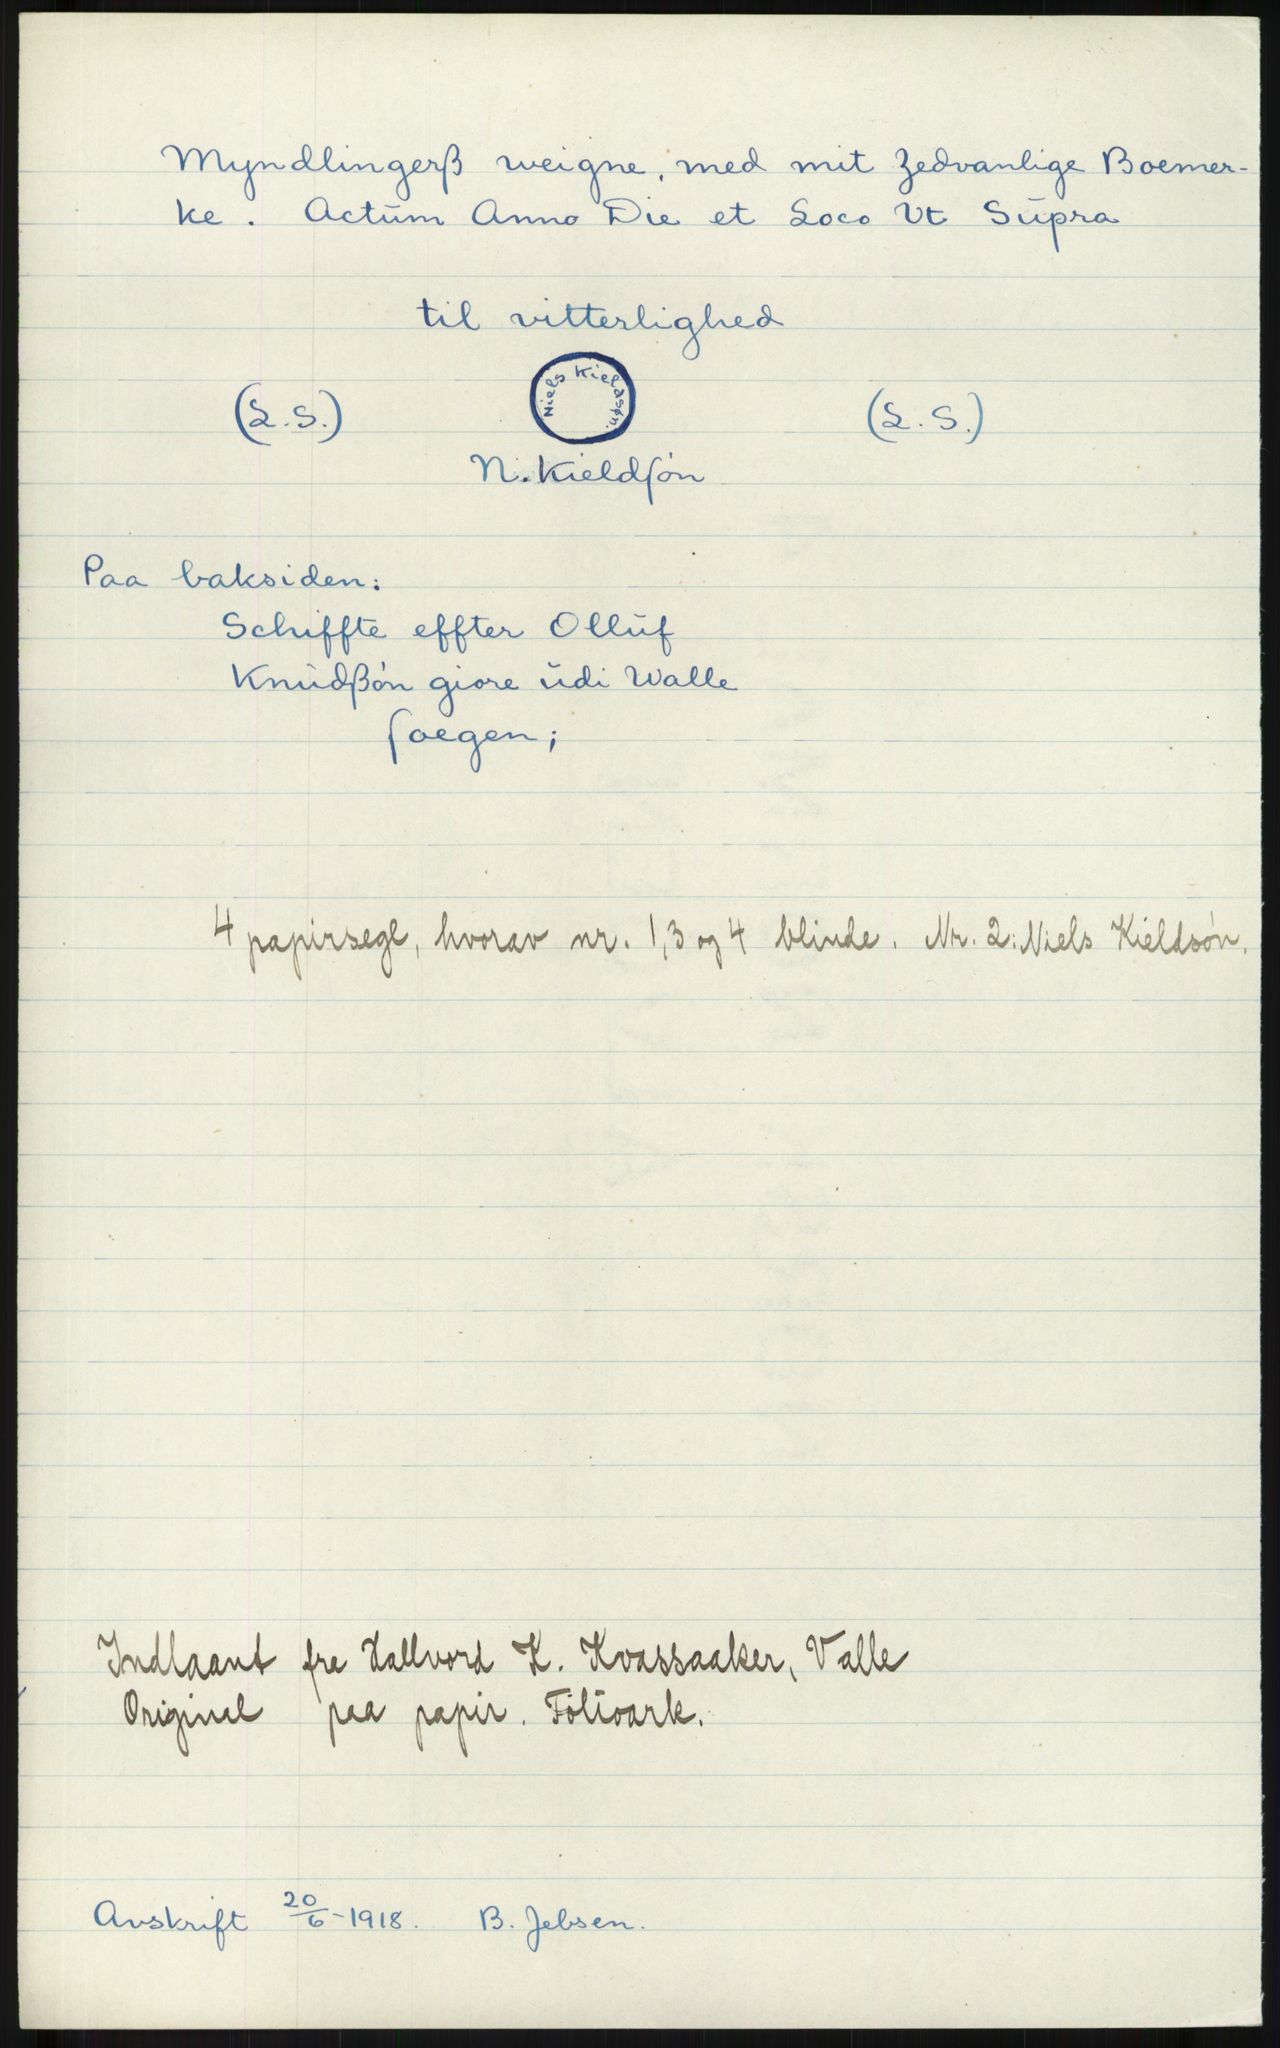 Myndlingerß weigne, med mit Zedvanlige Boemer-
ke. Actŭm Anno Die et Loco Vt Sŭpra
til vitterlighed
(L.S.) Niels Kieldsøn. (L.S.)
N. Kieldſón
Paa baksiden:
Schiffte effter Ollŭf
Knŭdßón giore ŭdi Walle
ſoegen;
4 papirsegl, hvorav nr. 1, 3 og 4 blinde. Nr. 2: Niels Kieldsón.
Indlaant fra Hallvord K. Kvassaaker, Valle
Original paa papir. Folioark.
Avskrift 20/6-1918. B. Jebsen.